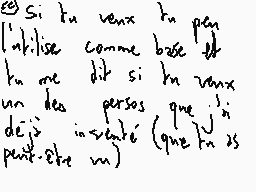 Si tu veux tu peu
l'utilise comme base et
tu me dit si tu veux
un des persos que j'ai
déjà inventé (que tu as
peut-être vu)